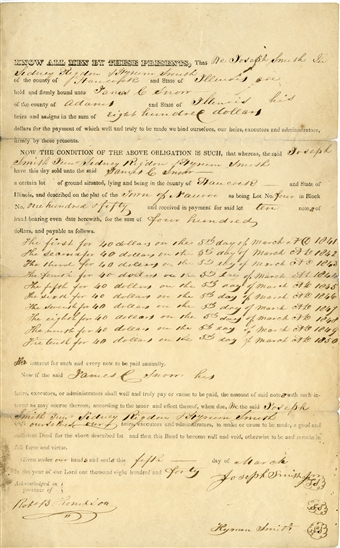 KNOW ALL MEN BY THESE PRESENTS, That We Joseph Smith Jr
Sidney Rigdon & Hyrum Smith
of the county of Hancock and State of Illinois are
held and firmly bound unto James C Snow
of the county of Adams and State of Illinois his
heirs and assigns in the sum of eight hundred dollars
dollars for the payment of which well and truly to be made we bind ourselves, our heirs, executors and administrators,
firmly by these presents.
NOW THE CONDITION OF THE ABOVE OBLIGATION IS SUCH, that whereas, the said Joseph
Smith Junr Sidney Rigdon & Hyrum Smith
have this day sold unto the said James C Snow
a certain lot of ground situated, lying and being in the county of Hancock and State of
Illinois, and described on the plat of the Town of Nauvoo as being Lot No. Four in Block
No. one hundred & fifty and received in payment for said lot ten notes of
hand bearing even date herewith, for the sum of four hundred
dollars, and payable as follows.
The first for 40 dollars on the 5th day of March A D 1841
The second for 40 dollars on the 5th day of March A D 1842
The third for 40 dollars on the 5th day of March A D 1843
The fourth for 40 dollars on the 5th day of March A D 1844
The fifth for 40 dollars on the 5th day of March A D 1845
The sixth for 40 dollars on the 5th day of March A D 1846
The seventh for 40 dollars on the 5th day of March A D 1847
The eighth for 40 dollars on the 5th day of March A D 1848
The ninth for 40 dollars on the 5th day of March A D 1849
The tenth for 40 dollars on the 5th day of March A D 1850
The interest for each and every note to be paid annually.
Now if the said James C Snow his
heirs, executors, or administrators shall well and truly pay or cause to be paid, the amount of said notes with such in-
terest as may accrue thereon, according to the tenor and effect thereof, when due, We the said Joseph
Smith Junr Sidney Rigdon & Hyrum Smith
ourselves our executors and administrators, to make or cause to be made, a good and
sufficient Deed for the above described lot and then this Bond to become null and void, otherwise to be and remain in
full force and virtue.
Given under our hands and seals this fifth day of March
in the year of our Lord one thousand eight hundred and forty
Acknowledged in
presence of
Joseph Smith Jr
Robt B Thompson
Hyrum Smith